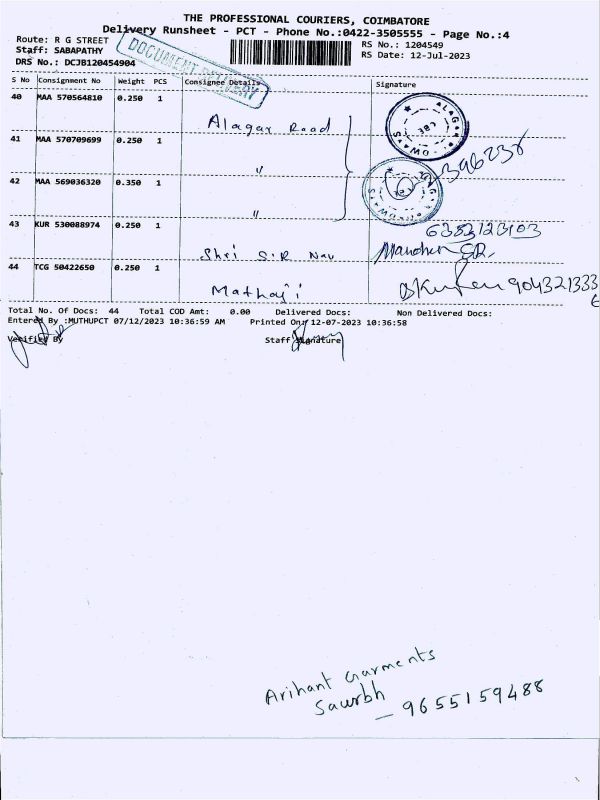 THE PROFESSIONAL COURIERS, COIMBATORE
Delivery Runsheet - PCT - Phone No.:0422-3505555 - Page No.:4
Route: R G STREET
RS No.: 1204549
Staff: SABAPATHY
RS Date: 12-Jul-2023
DRS No.: DCJB120454904
DOCUMENT DELIVERY
S No Consignment No Weight PCS Consignee Details Signature
40 MAA 570564810 0.250 1 Alagar Road
41 MAA 570709699 0.250 1 "
42 MAA 569036320 0.350 1 "
43 KUR 530088974 0.250 1 Shri S.R Nav 6382123103
44 TCG 50422650 0.250 1 Mathaji
Total No. Of Docs: 44 Total COD Amt: 0.00 Delivered Docs: Non Delivered Docs:
Entered By :MUTHUPCT 07/12/2023 10:36:59 AM Printed On: 12-07-2023 10:36:58
Verified By Staff Signature
Arihant Garments
Saurbh
- 9655159488